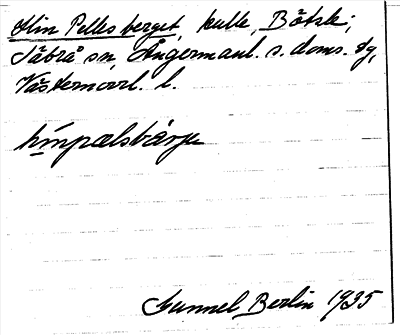 Hin Pelles berget, kulle, Bölsle;
Säbrå sn, Ångermanl. s. doms. dg,
Västernorrl. l.
hinpælsbärje
Gunnel Berlin 1935